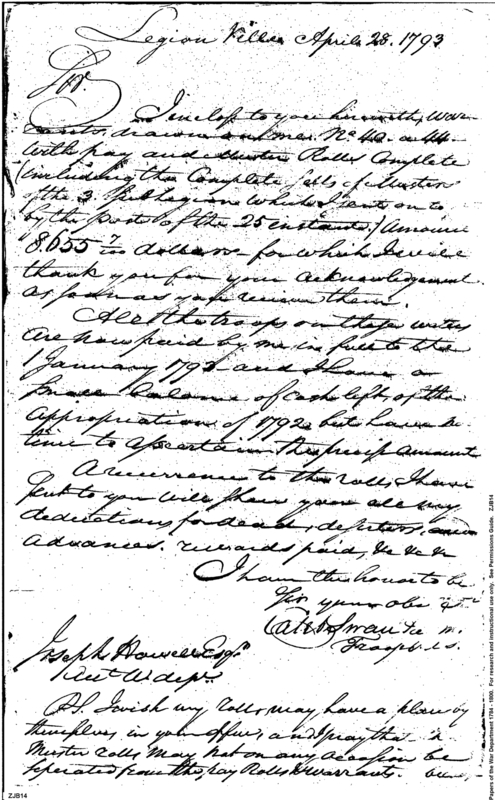 Legion Ville April 28. 1793
Sir.
I inclose to you herewith, War-
rants drawn on me. No 40. a 44.
with pay and Muster Rolls Complete
(including the Complete Rolls of Muster
of the 3. Sub Legion which I sent on to
by the post of the 25 instant.) Amount
8,655 7/100 dollars for which I will
thank you for your acknowledgement.
as soon as you receive them.
All the troops on these waters
are now paid by me in full to the
1 January 1793 and I have a
small balance of cash left of the
appropriation of 1792 but have no
time to ascertain the precise amount
A recurrence to the rolls I have
sent to you will shew you all my
deductions for dead, deserters, and
advances. rewards paid, &c &c &c
I have the honor to be
Sir your obe St
Caleb Swan
Troops U.S.
Joseph Howell Esqr
W. dept.
P.S. I wish my rolls may have a place by
themselves in your office, and I pray the
Muster rolls may not on any occasion be
seperated from the pay Rolls & warrants.
ZJB14
Papers of the War Department 1784 - 1800. For research and instructional use only. See Permissions Guide. ZJB14